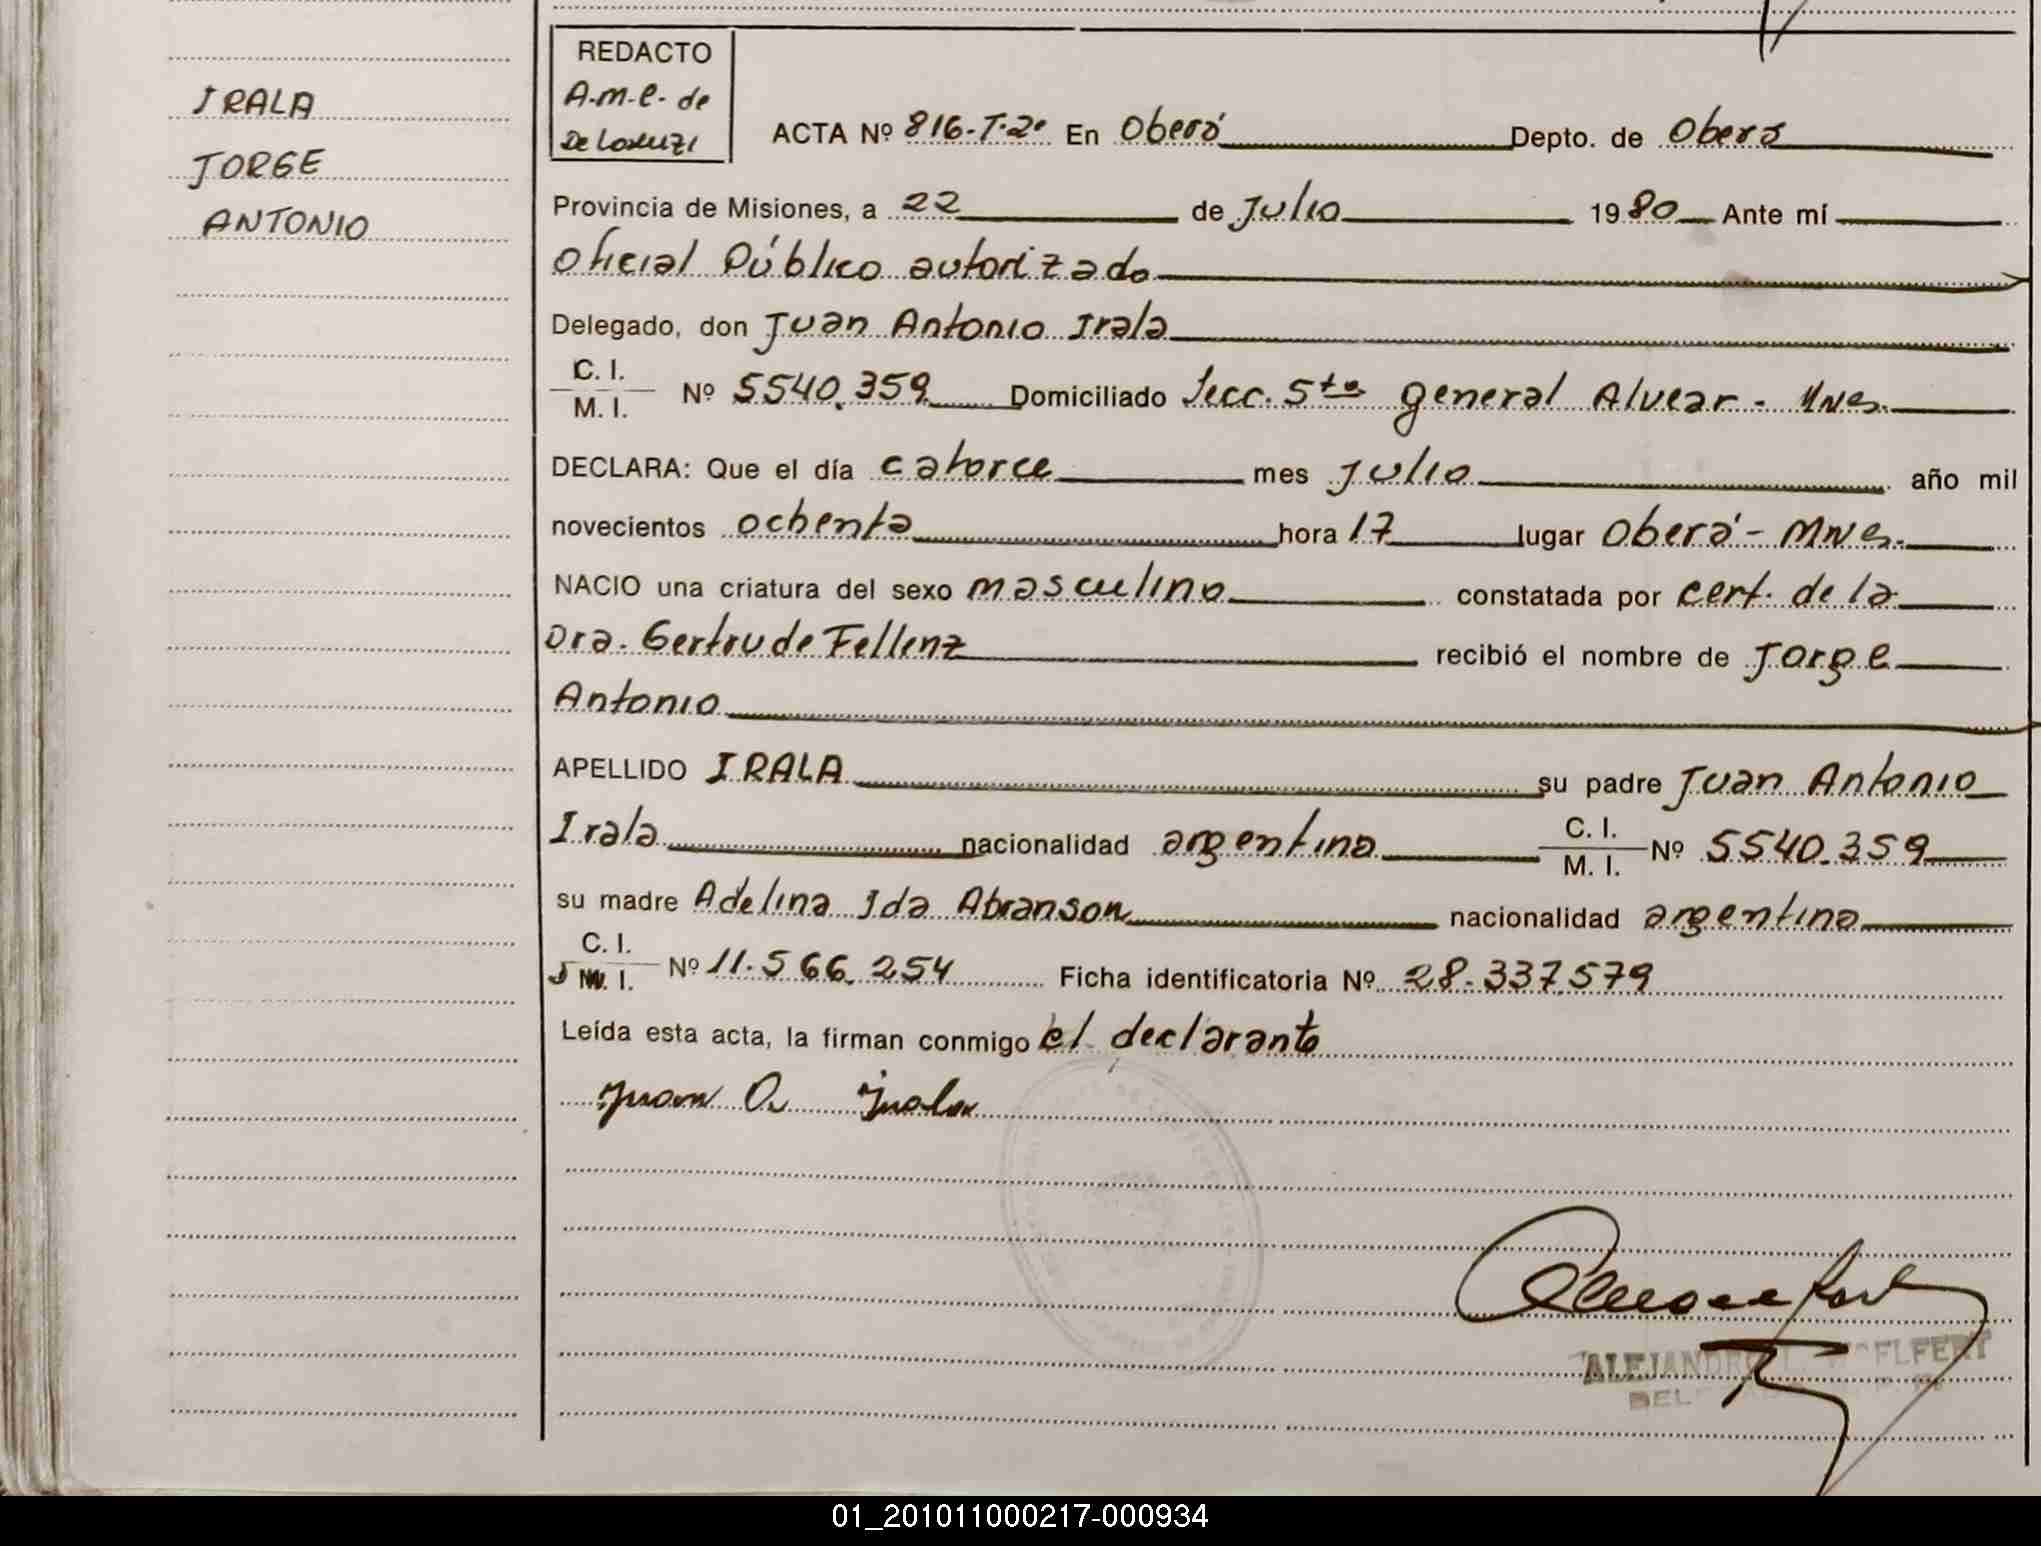 IRALA
JORGE
ANTONIO
REDACTO
A.m.e. de
De Lorenzi
ACTA Nº 816-T.2º En Oberá Depto. de Oberá
Provincia de Misiones, a 22 de Julio 1980 Ante mí
Oficial Público autorizado
Delegado, don Juan Antonio Irala
C. I.
M. I. Nº 5540.359 Domiciliado Secc. 5ta general Alvear - Mnes.
DECLARA: Que el día catorce mes Julio año mil
novecientos ochenta hora 17 lugar Oberá - Mnes.
NACIO una criatura del sexo masculino constatada por cert. de la
Dra. Gertrude Fellenz recibió el nombre de Jorge
Antonio
APELLIDO IRALA su padre Juan Antonio
Irala nacionalidad argentina C. I.
M. I. Nº 5540.359
su madre Adelina Ida Abranson nacionalidad argentina
C. I.
M. I. Nº 11.566.254 Ficha identificatoria Nº 28.337.579
Leída esta acta, la firman conmigo el declarante
Juan A. Irala
ALEJANDRO
01_201011000217-000934